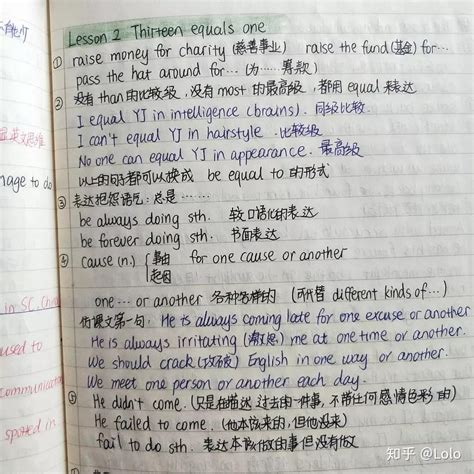 Lesson 2 Thirteen equals one
① raise money for charity (慈善事业) raise the fund (基金) for…
pass the hat around for… (为……筹款)
② 没有 than 的比较级，没有 most 的最高级，都用 equal 来表达
I equal YJ in intelligence (brains). 同级比较.
I can't equal YJ in hairstyle. 比较级
No one can equal YJ in appearance. 最高级
以上的句子都可以换成 be equal to 的形式
③ 表达抱怨语气：总是……
be always doing sth. 较口语化的表达
be forever doing sth. 书面表达
④ cause (n.) { 事由 for one cause or another
起因
one … or another 各种各样的 (可代替 different kinds of…)
仿课文第一句: He is always coming late for one excuse or another
He is always irritating (激怒) me at one time or another.
We should crack (攻破) English in one way or another.
We meet one person or another each day.
He didn't come. (只是在描述过去的一件事，不带任何感情色彩的)
He failed to come. (他本该来的，但他没来)
fail to do sth. 表达本该做的事但没有做
nage to do
in SC, China
used to
Communication
spotted in
知乎 @Lolo